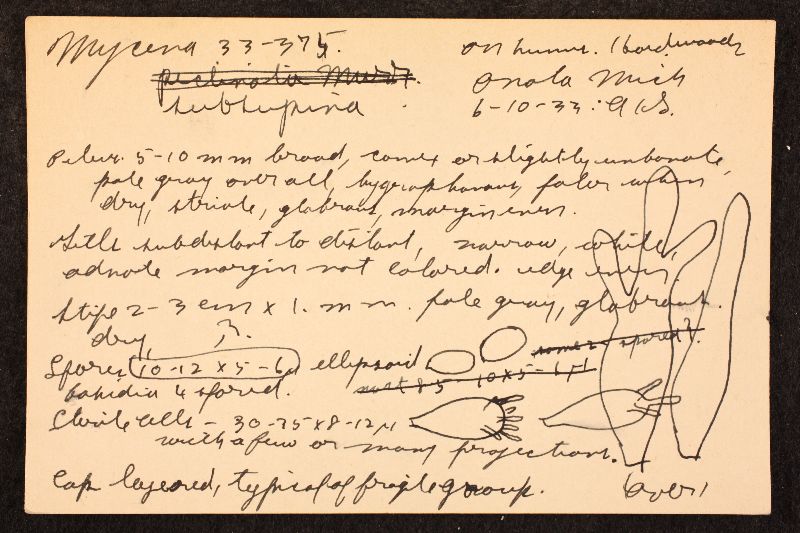 Mycena 33-375.
on humus. (hardwoods
pectinata Murr.
subsupina
Onota Mich
6-10-33. AHS.
Pileus. 5-10 mm broad, convex or slightly umbonate,
pale gray over all, hygrophanous, paler when
dry, striate, glabrous, margin even.
Gills subdistant to distant, narrow, white,
adnate margin not colored. edge even
Stipe 2-3 cm x 1. mm. pale gray, glabrous.
dry,
Spores 10-12 x 5-6 ellipsoid
some 2 spored?
most 8.5-10x5-6 µ
basidia 4 spored.
Cheilocells - 30-35x8-12µ
with a few or many projections.
Cap layered, typical of fragile group.
(over)